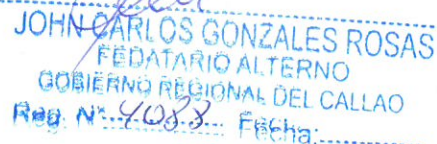 JOHN CARLOS GONZALES ROSAS
FEDATARIO ALTERNO
GOBIERNO REGIONAL DEL CALLAO
Reg. N° 4088 Fecha: